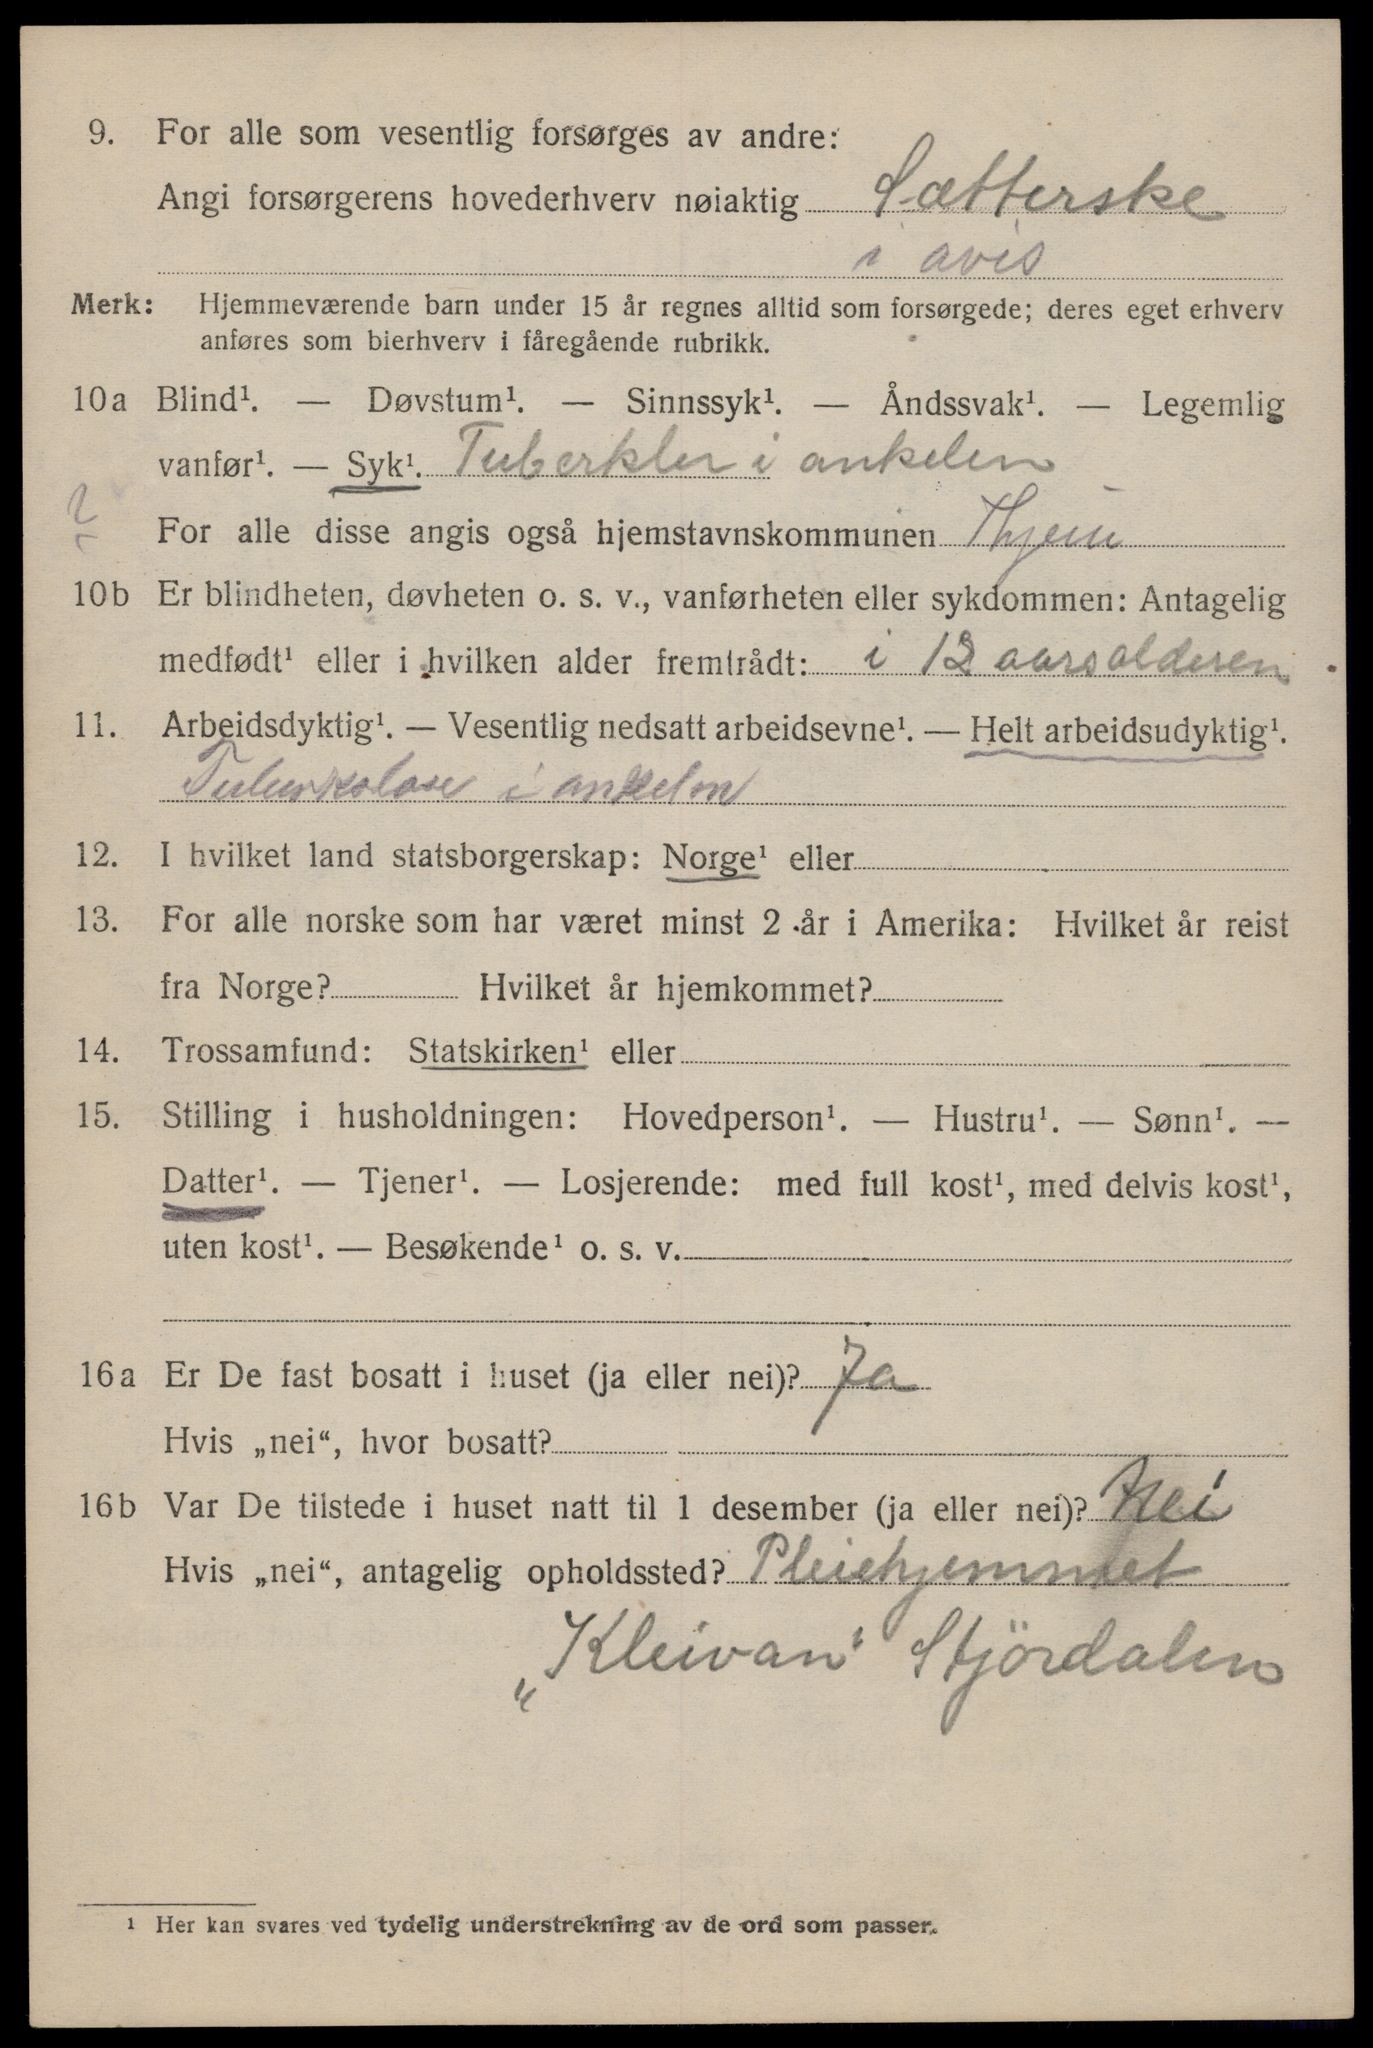 9. For alle som vesentlig forsørges av andre:
Angi forsørgerens hovederhverv nøiaktig Sætterske
i avis
Merk: Hjemmeværende barn under 15 år regnes alltid som forsørgede; deres eget erhverv
anføres som bierhverv i føregående rubrikk.
10a Blind¹. — Døvstum¹. — Sinnssyk¹. — Åndssvak¹. — Legemlig
vanfør¹. — Syk¹. Tuberkler i ankelen
For alle disse angis også hjemstavnskommunen
10b Er blindheten, døvheten o. s. v., vanførheten eller sykdommen: Antagelig
medfødt¹ eller i hvilken alder fremtrådt: i 12 aarsalderen
11. Arbeidsdyktig¹. — Vesentlig nedsatt arbeidsevne¹. — Helt arbeidsudyktig¹.
Tuberkolose i ankelen
12. I hvilket land statsborgerskap: Norge¹ eller
13. For alle norske som har været minst 2 år i Amerika: Hvilket år reist
fra Norge? Hvilket år hjemkommet?
14. Trossamfund: Statskirken¹ eller
15. Stilling i husholdningen: Hovedperson¹. — Hustru¹. — Sønn¹. —
Datter¹. — Tjener¹. — Losjerende: med full kost¹, med delvis kost¹,
uten kost¹. — Besøkende¹ o. s. v.
16a Er De fast bosatt i huset (ja eller nei)? Ja
Hvis „nei“, hvor bosatt?
16b Var De tilstede i huset natt til 1 desember (ja eller nei)? Nei
Hvis „nei“, antagelig opholdssted? Pleiehjemmet
„Kleivan“ Stjördalen
¹ Her kan svares ved tydelig understrekning av de ord som passer.